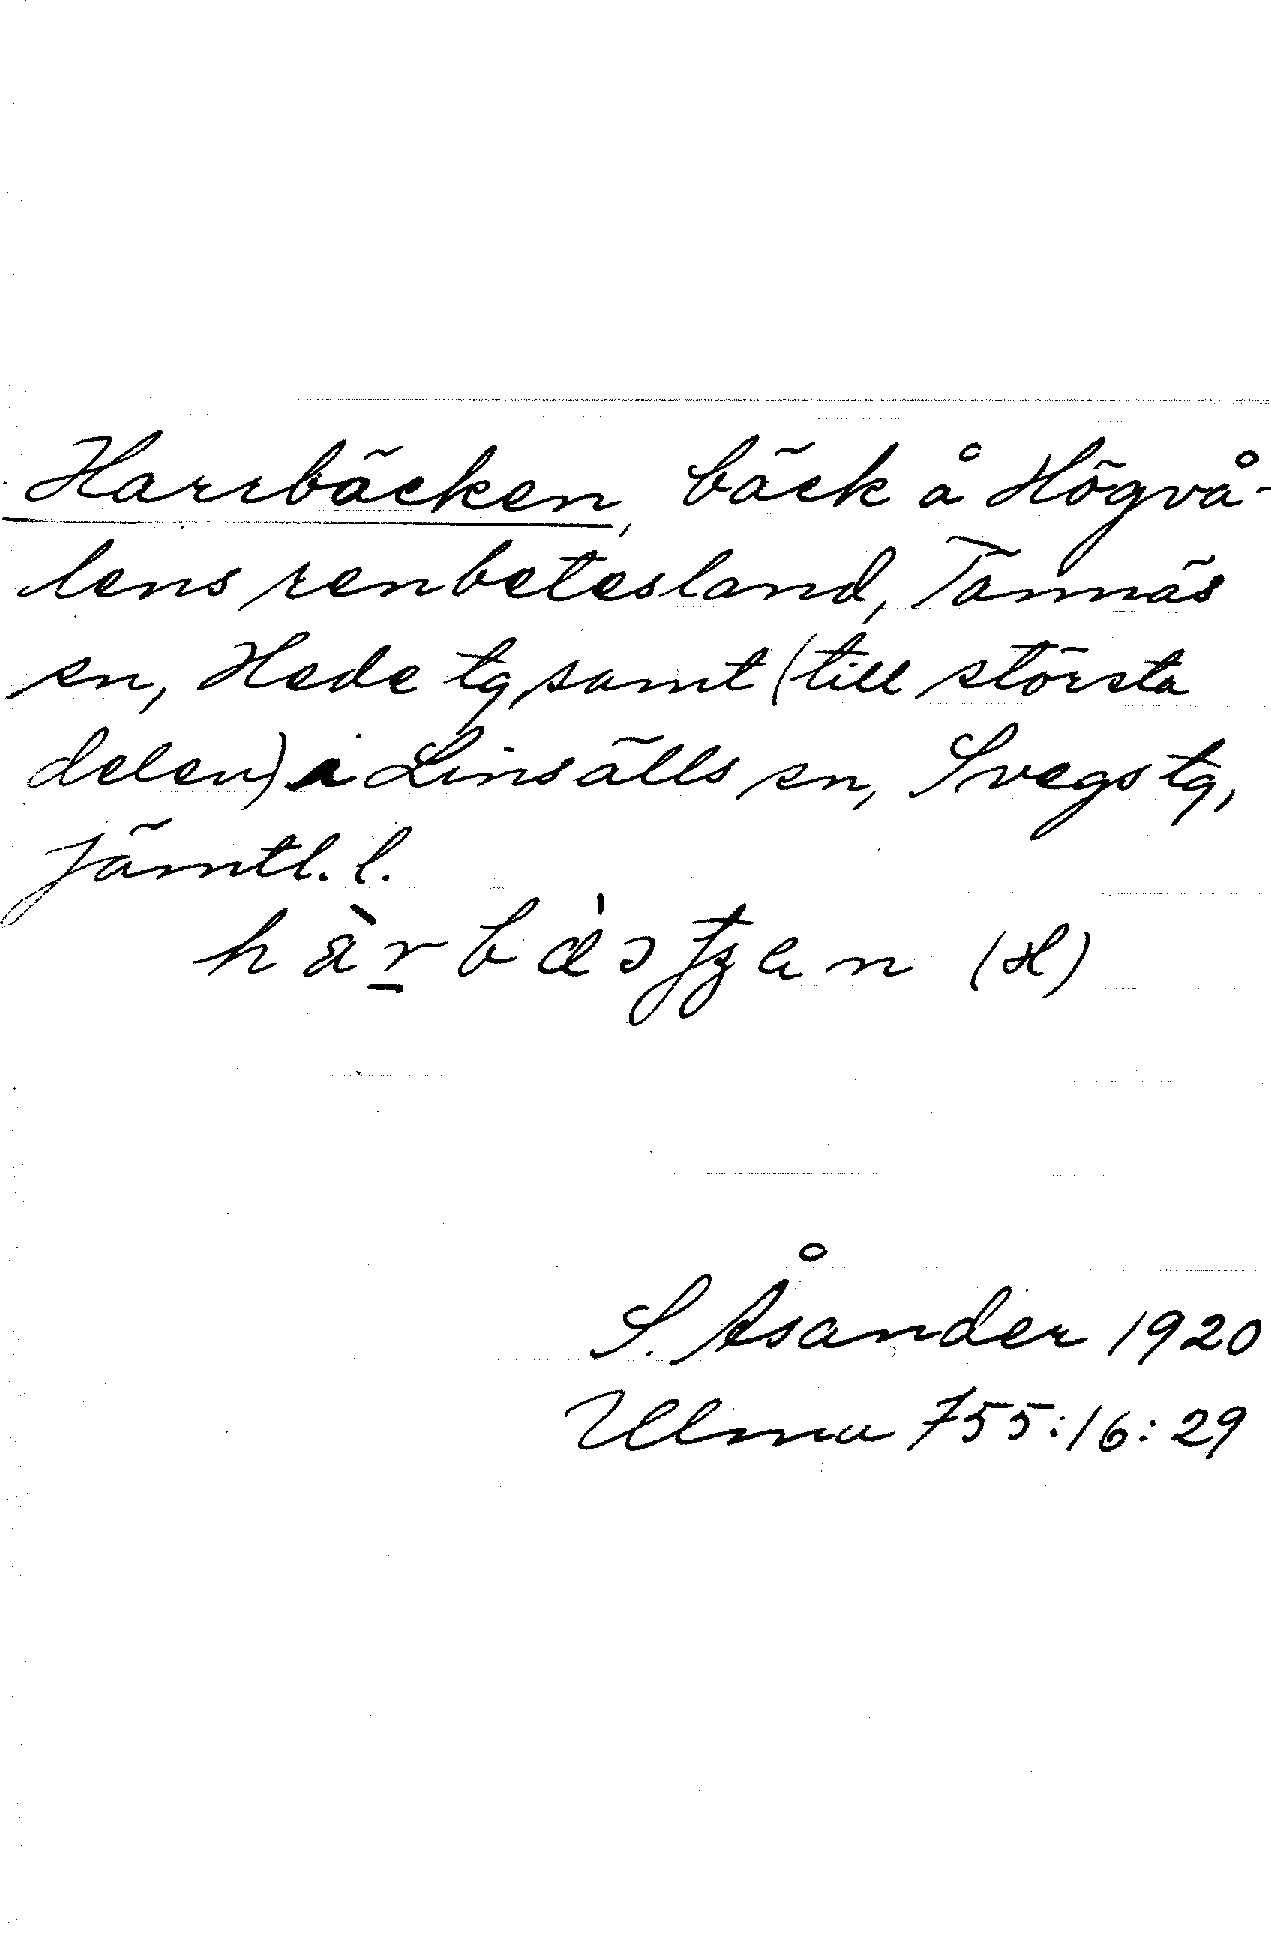 Harrbäcken, bäck å Högvå-
lens renbetesland, Tännäs
sn, Hede tg samt (till största
delen) i Linsälls sn, Svegs tg,
Jämtl. l.
(H)
S. Åsander 1920
Ulma 755:16:29